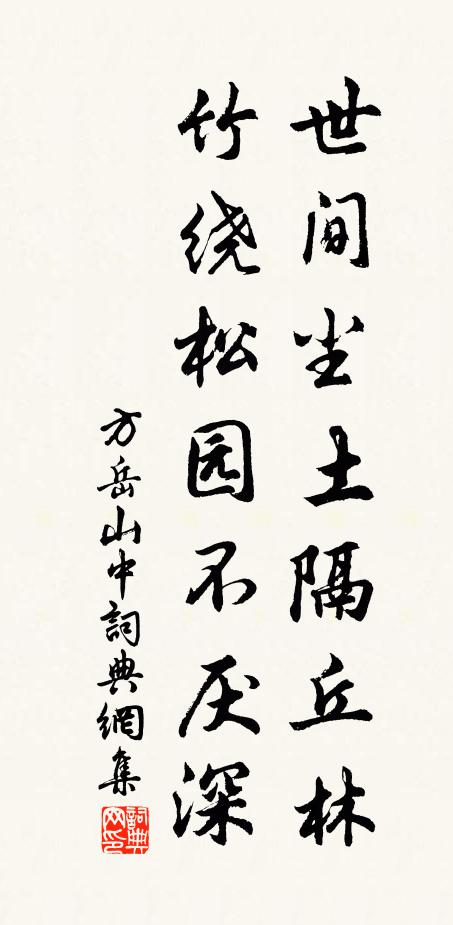 世间尘土隔丘林
竹绕松园不厌深
方岳山中詞典網集
詞典网印